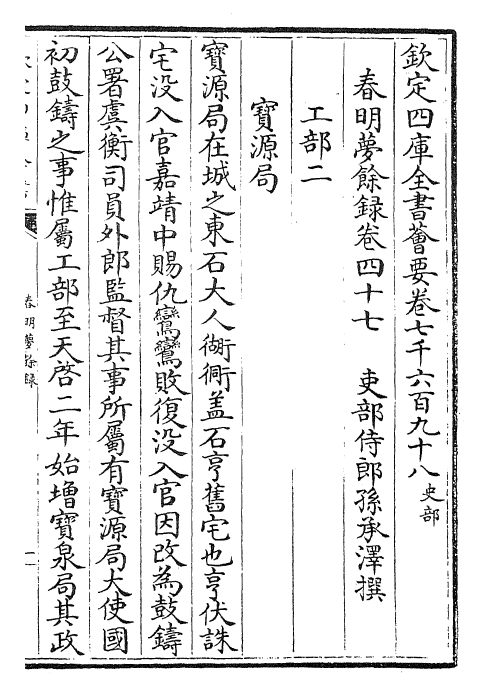 欽定四庫全書薈要卷七千六百九十八 史部
春明夢餘録卷四十七 吏部侍郎孫承澤撰
工部二
寳源局
寳源局在城之東石大人衚衕盖石亨舊宅也亨伏誅
宅没入官嘉靖中賜仇鸞鸞敗復没入官因改為鼓鑄
公署虞衡司員外郎監督其事所屬有寳源局大使國
初鼓鑄之事惟屬工部至天啓二年始增寳泉局其政
春明夢餘録
一